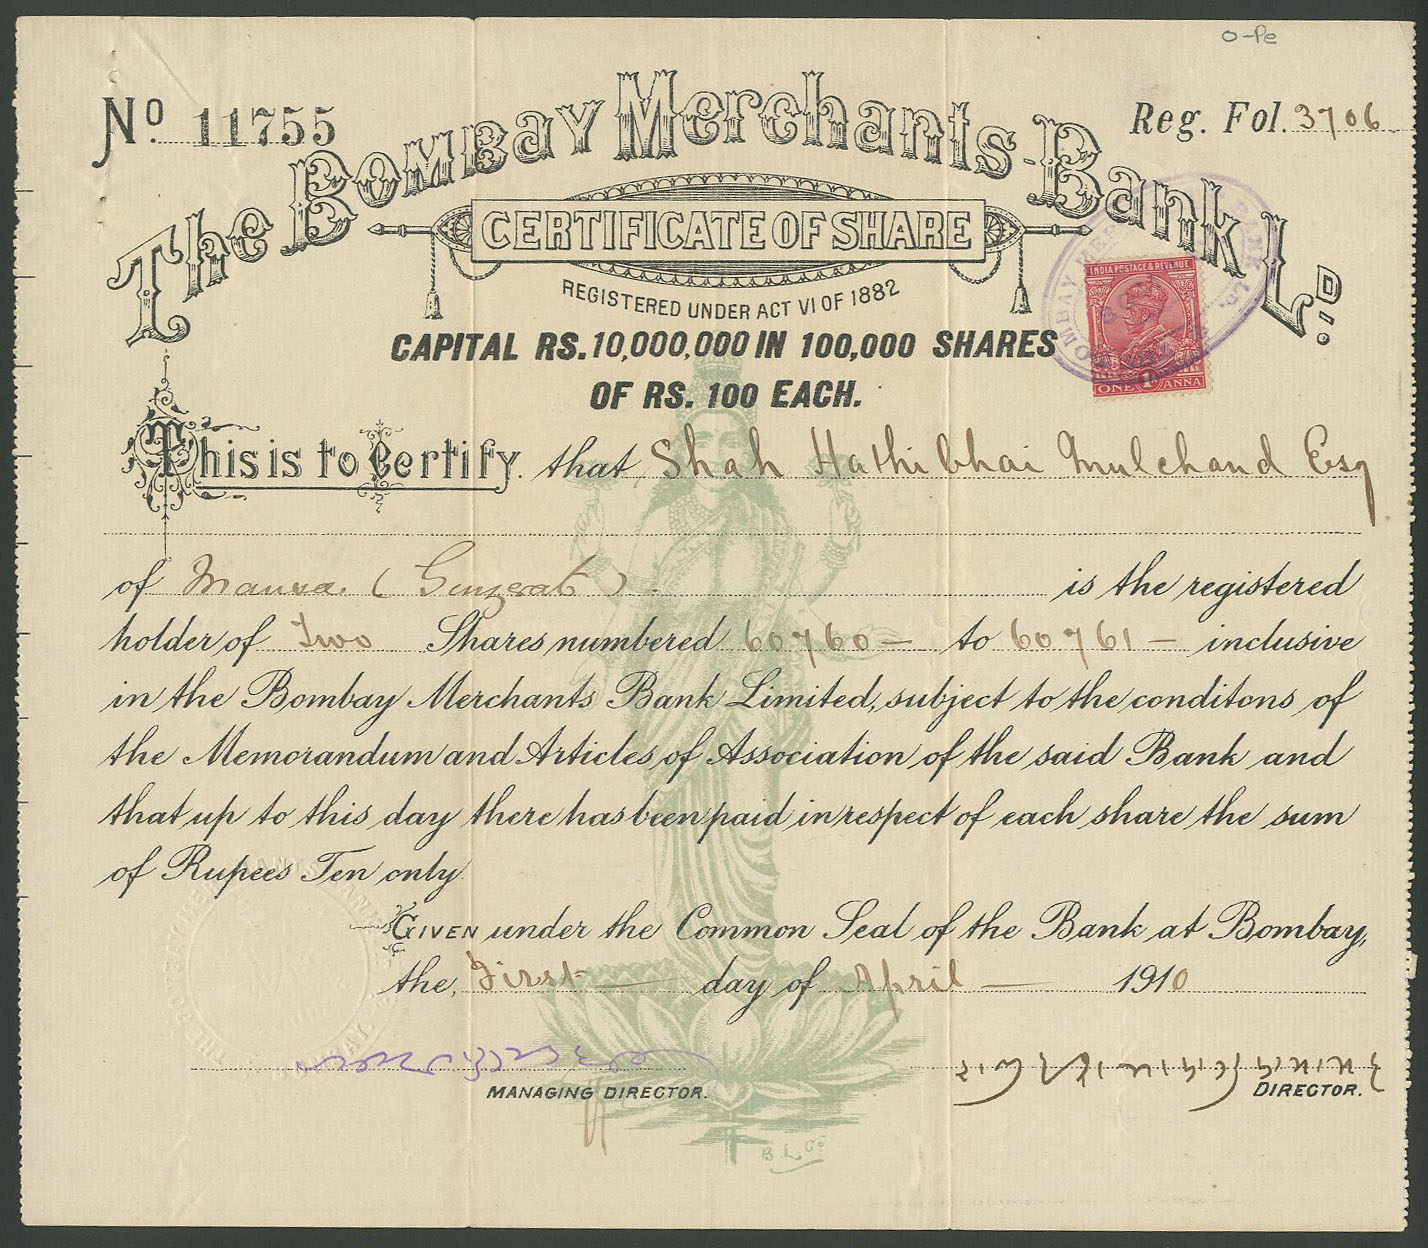 O-Pe
No 11755
Reg. Fol. 3706
The Bombay Merchants Bank Ld.
CERTIFICATE OF SHARE
REGISTERED UNDER ACT VI OF 1882
INDIA POSTAGE & REVENUE
ONE 1A ANNA
CAPITAL RS. 10,000,000 IN 100,000 SHARES
OF RS. 100 EACH.
This is to Certify. that Shah Hathibhai Mulchand Esq
of Mansa (Guzerat) is the registered
holder of Two Shares numbered 60760 - to 60761 - inclusive
in the Bombay Merchants Bank Limited, subject to the conditons of
the Memorandum and Articles of Association of the said Bank and
that up to this day there has been paid in respect of each share the sum
of Rupees Ten only
GIVEN under the Common Seal of the Bank at Bombay,
the, First day of April 1910
MANAGING DIRECTOR.
DIRECTOR.
B L Co